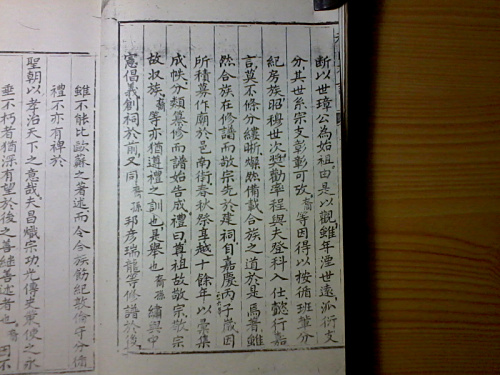 断以世璋公為始祖由是以觀雖年湮世遠派衍支
分其世系宗支彰彰可攷裔等因得以按循班輩分
紀房族昭穆世次奬勸率程與夫登科入仕懿行嘉
言莫不條分縷晰燦然備載合族之道於是焉著雖
然合族在修譜而敬宗先於建祠自嘉慶丙子歲因
所積募作廟於邑南街春秋祭享越十餘年以彙集
成帙分類纂修而譜始告成禮曰尊祖故敬宗敬宗
故収族裔等亦猶遵禮之訓也是舉也裔孫繡墀中
憲倡義創祠於前又同裔孫邦彦瑞龍等修譜於後
雖不能比歐蘇之著述而令合族飭紀敦倫于分備
禮不亦有裨於
聖朝以孝治天下之意哉夫昌熾宗功光傳史乘使之永
垂不朽者猶深有望於後之善継善述者也